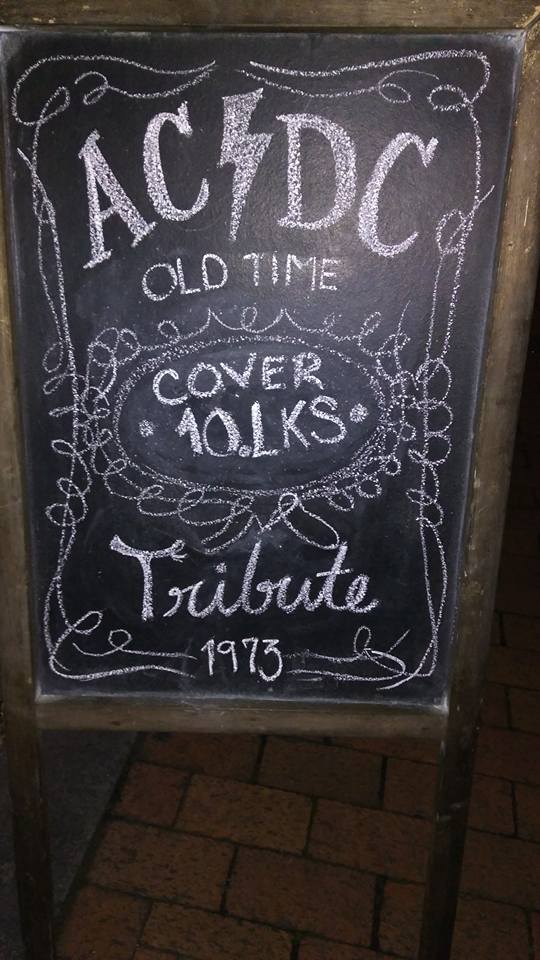 AC⚡DC
OLD TIME
COVER
10.LKS
Tribute
1973